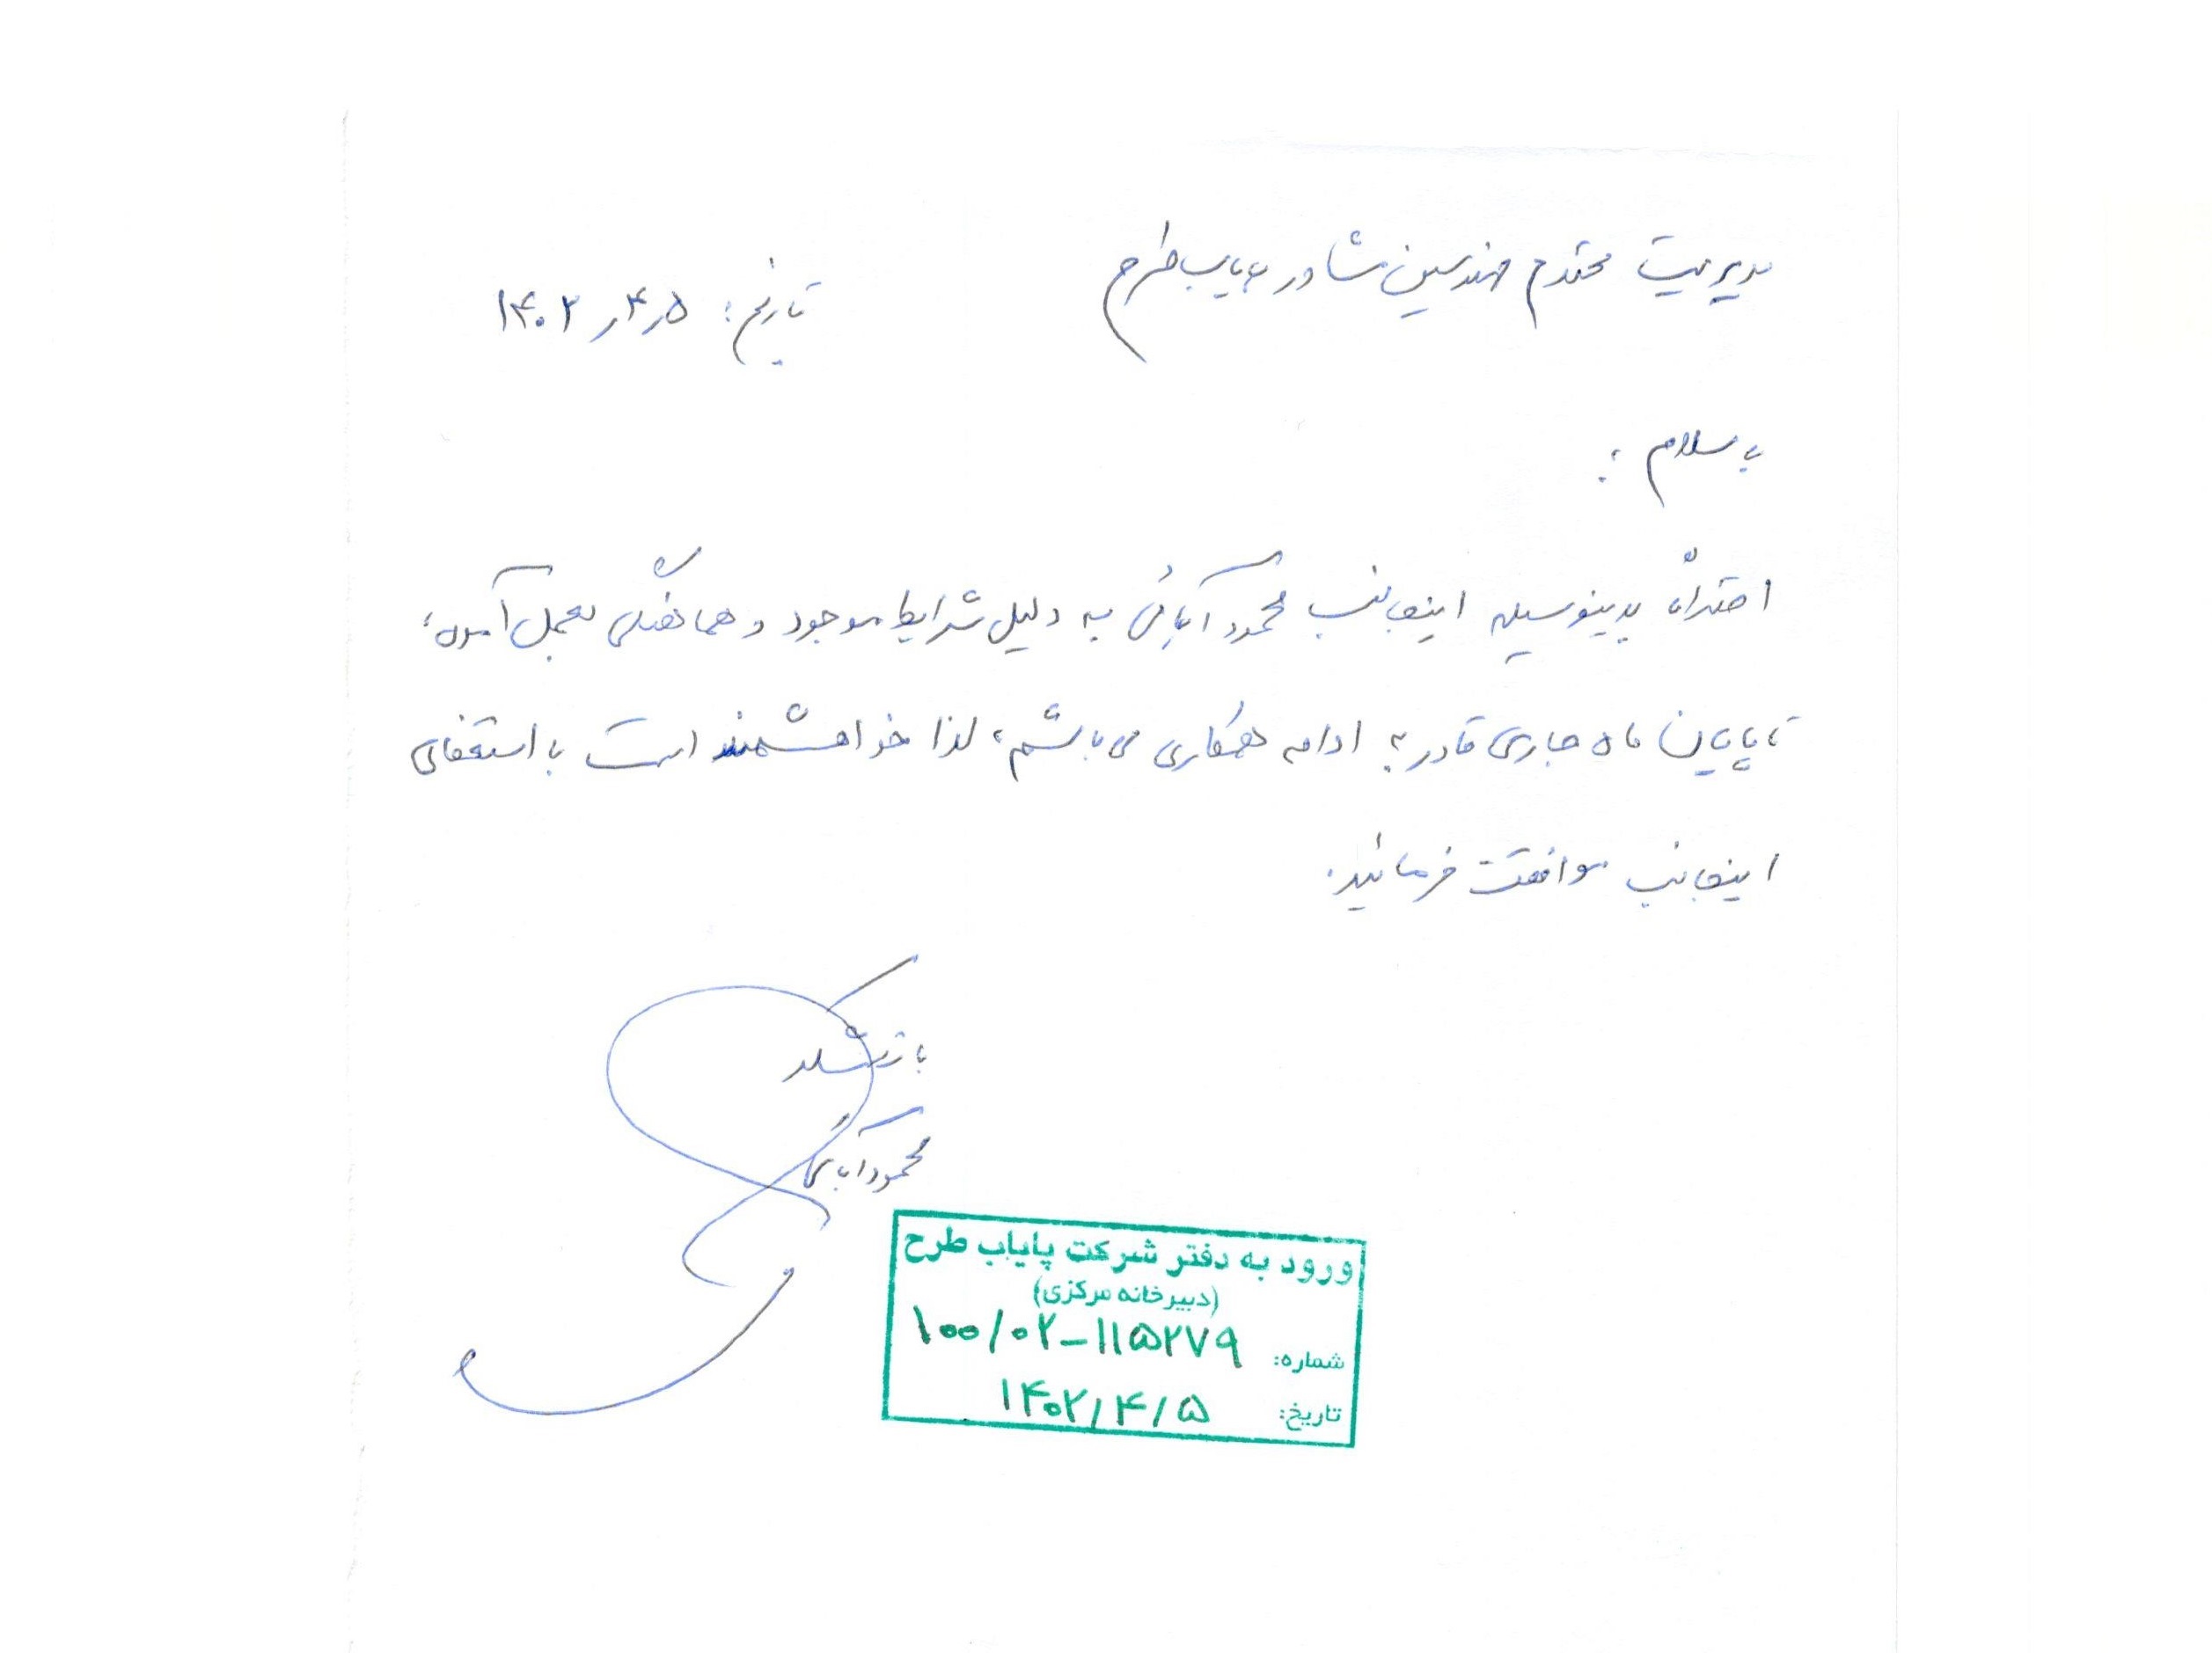 مدیریت محترم مهندسین مشاور پایاب طرح
تاریخ: ۱۴۰۲٫۴٫۵
با سلام؛
احتراماً بدینوسیله اینجانب محمود آبائی به دلیل شرایط موجود و هماهنگی بعمل آمده،
تا پایان ماه جاری قادر به ادامه همکاری می باشم، لذا خواهشمند است با استعفای
اینجانب موافقت فرمائید.
با تشکر
محمود
ورود به دفتر شرکت پایاب طرح
(دبیرخانه مرکزی)
شماره: ۱۰۰/۰۲-۱۱۵۲۷۹
تاریخ: ۱۴۰۲/۴/۵